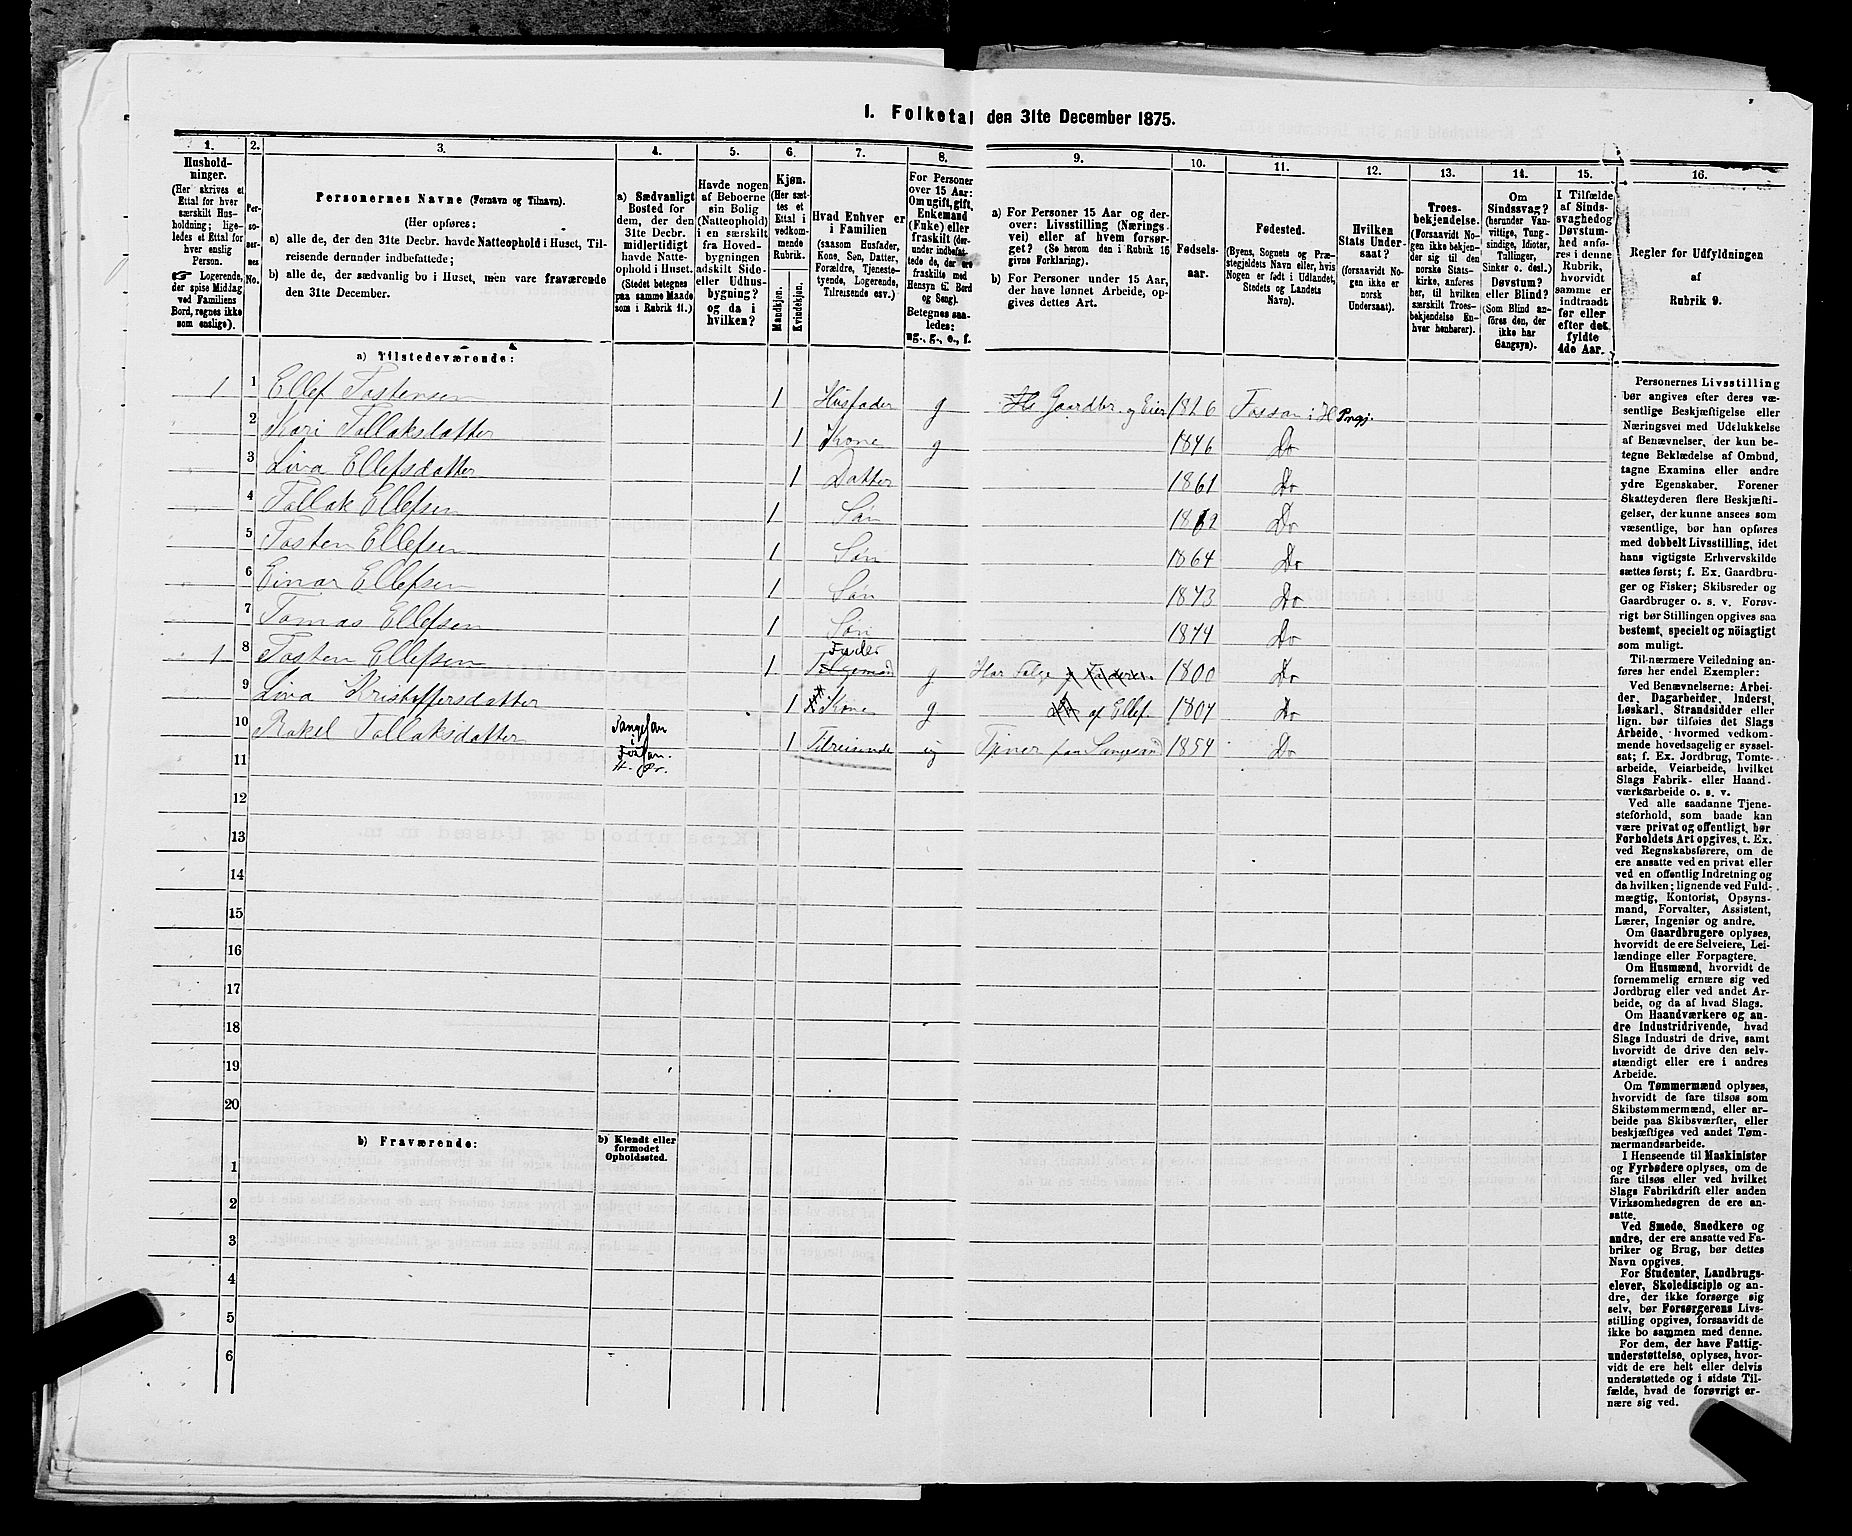 1. Folketal den 31te December 1875.
1.
2.
3.
4.
5.
6.
7.
8.
9.
10.
11.
12.
13.
14.
15.
16.
Hushold-
ninger.
(Her skrives et
Ettal for hver
særskilt Hus-
holdning; lige-
ledes et Ettal for
hver enslig
Person.
☞ Logerende,
der spise Middag
ved Familiens
Bord, regnes ikke
som enslige).
Per-
soner-
nes
No.
Personernes Navne (Fornavn og Tilnavn).
(Her opføres:
a) alle de, der den 31te Decbr. havde Natteophold i Huset, Til-
reisende derunder indbefattede;
b) alle de, der sædvanlig bo i Huset, men vare fraværende
den 31te December.
a) Sædvanligt
Bosted for
dem, der den
31te Decbr.
midlertidigt
havde Natte-
ophold i Huset.
(Stedet betegnes
paa samme Maade
som i Rubrik 11.)
Havde nogen
af Beboerne
sin Bolig
(Natteophold)
i en særskilt
fra Hoved-
bygningen
adskilt Side-
eller Udhus-
bygning?
og da i
hvilken?
Kjøn.
(Her sæt-
tes et
Ettal i
vedkom-
mende
Rubrik.
Mandkjøn.
Kvindekjøn.
Hvad Enhver er
i Familien
(saasom Husfader,
Kone, Søn, Datter,
Forældre, Tjeneste-
tyende, Logerende,
Tilreisende osv.)
For Personer
over 15 Aar:
Om ugift, gift,
Enkemand
(Enke) eller
fraskilt (der-
under indbefat-
tede de, der ere
fraskilte med
Hensyn til Bord
og Seng).
Betegnes saa-
ledes:
ug., g., e., f.
a) For Personer 15 Aar og der-
over: Livsstilling (Nærings-
vei) eller af hvem forsør-
get? (Se herom den i Rubrik 16
givne Forklaring).
b) For Personer under 15 Aar,
der have lønnet Arbeide, op-
gives dettes Art.
Fødsels-
aar.
Fødested.
(Byens, Sognets og Præ-
stegjeldets Navn eller, hvis
Nogen er født i Udlandet,
Stedets og Landets
Navn).
Hvilken
Stats Under-
saat?
(forsaavidt No-
gen ikke er
norsk
Undersaat).
Troes-
bekjendelse.
(Forsaavidt No-
gen ikke bekjen-
der sig til den
norske Stats-
kirke, anføres
her, til hvilken
særskilt Troes-
bekjendelse En-
hver henhører).
Om
Sindssvag?
(herunder Van-
vittige, Tung-
sindige, Idioter,
Tullinger,
Sinker o. desl.)
Døvstum?
eller Blind?
(Som Blind an-
føres den, der
ikke har
Gangsyn).
I Tilfælde
af Sinds-
svaghed og
Døvstum-
hed anfø-
res i denne
Rubrik,
hvorvidt
samme er
indtraadt
før eller
efter det
fyldte
4de Aar.
Regler for Udfyldningen
af
Rubrik 9.
a) Tilstedeværende:
1 1 Ellef Tostensen 1 Husfader g Gaardbr. og Eier 1826 Fossan i H Prgj.
2 Kari Tollaksdatter 1 Kone g 1846 Do
3 Liva Ellefsdatter 1 Datter 1861 Do
4 Tollak Ellefsen 1 Søn 1862 Do
5 Tosten Ellefsen 1 Søn 1864 Do
6 Einar Ellefsen 1 Søn 1873 Do
7 Tomas Ellefsen 1 Søn 1874 Do
Fader
1 8 Tosten Ellefsen 1 g Har Følge 1800 Do
9 Liva Kristoffersdatter 1 Kone g af Ellef 1807 Do
10 Rakel Tollaksdatter 1 Tilreisende ug Tjener paa 1854 Do
i
Fossan
H. Pr.
11
12
13
14
15
16
17
18
19
20
b) Fraværende:
b) Kjendt eller
formodet
Opholdssted.
1
2
3
4
5
6
Personernes Livsstilling
bør angives efter deres væ-
sentlige Beskjæftigelse eller
Næringsvei med Udelukkelse
af Benævnelser, der kun be-
tegne Beklædelse af Ombud,
tagne Examina eller andre
ydre Egenskaber. Forener
Skatteyderen flere Beskjæfti-
gelser, der kunne ansees som
væsentlige, bør han opføres
med dobbelt Livsstilling, idet
hans vigtigste Erhvervskilde
sættes først; f. Ex. Gaardbru-
ger og Fisker; Skibsreder og
Gaardbruger o. s. v. Forøv-
rigt bør Stillingen opgives saa
bestemt, specielt og nöiagtigt
som muligt.
Til nærmere Veiledning an-
føres her endel Exempler:
Ved Benævnelserne: Arbei-
der, Dagarbeider, Inderst,
Løskarl, Strandsidder eller
lign. bør tilføies det Slags
Arbeide, hvormed vedkom-
mende hovedsagelig er syssel-
sat; f. Ex. Jordbrug, Tomte-
arbeide, Veiarbeide, hvilket
Slags Fabrik- eller Haand-
værksarbeide o. s. v.
Ved alle saadanne Tjene-
steforhold, som baade kan
være privat og offentligt, bør
Forholdets Art opgives, t. Ex.
ved Regnskabsførere, om de
ere ansatte ved en privat eller
ved en offentlig Indretning og
da hvilken; lignende ved Fuld-
mægtig, Kontorist, Opsyns-
mand, Forvalter, Assistent,
Lærer, Ingeniør og andre.
Om Gaardbrugere oplyses,
hvorvidt de ere Selveiere, Lei-
lændinge eller Forpagtere.
Om Husmænd, hvorvidt de
fornemmelig ernære sig ved
Jordbrug eller ved andet Ar-
beide, og da af hvad Slags.
Om Haandværkere og an-
dre Industridrivende, hvad
Slags Industri de drive, samt
hvorvidt de drive den selv-
stændigt eller ere i andres
Arbeide.
Om Tømmermænd oplyses,
hvorvidt de fare tilsøs som
Skibstømmermænd, eller ar-
beide paa Skibsværfter, eller
beskjæftiges ved andet Tøm-
mermandsarbeide.
I Henseende til Maskinister
og Fyrbødere oplyses, om de
fare tilsøs eller ved hvilket
Slags Fabrikdrift eller anden
Virksomhedsgren de ere an-
satte.
Ved Smede, Snedkere og
andre, der ere ansatte ved Fa-
briker og Brug, bør dettes
Navn opgives.
For Studenter, Landbrugs-
elever, Skoledisciple og an-
dre, der ikke forsørge sig
selv, bør Forsørgerens Livs-
stilling opgives, forsaavidt de
ikke bo sammen med denne.
For dem, der have Fattig-
understøttelse, oplyses, hvor-
vidt de ere helt eller delvis
understøttede og i sidste Til-
fælde, hvad de forøvrigt er-
nære sig ved.